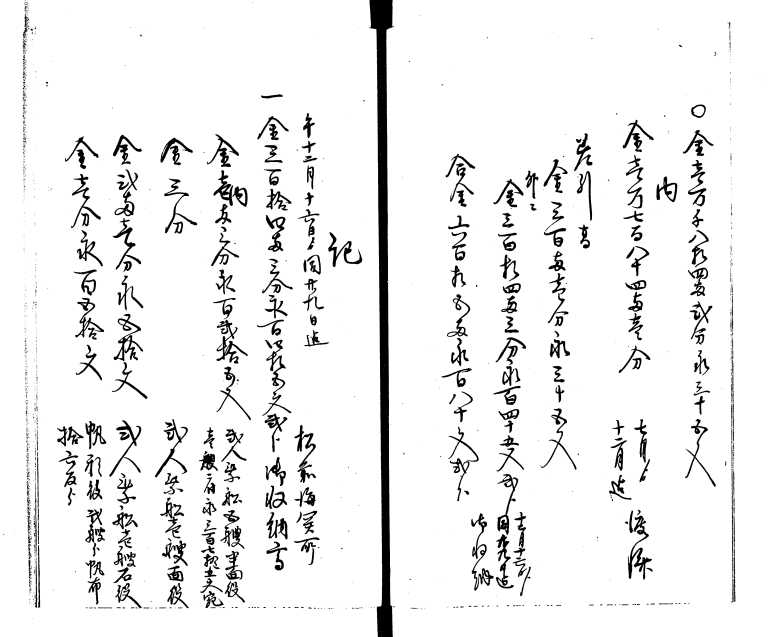 〇金壱万千八拾四両弐分永三十五文
内
金壱万七百八十四両壱分
七月ゟ
十二月迄
渡済
差引高
金三百両壱分永三十五文
外ニ
金三百拾四両三分永百四十五文弐分
十二月十六日ゟ
同廿九日迄
御収納
合金六百拾五両永百八十文弐分
記
午十二月十六日ゟ同廿九日迄
松前海関所
一金三百拾四両三分永百四拾五文弐分御収納高
内
金壱両三分永百弐拾五文
弐人乗船五艘半面役
壱艘ニ付永三百七拾五文宛
金三分
弐人乗船壱艘面役
金弐両壱分永五拾文
弐人乗船壱艘石役
金壱分永百五拾文
帆形役弐艘分帆布
拾六反分